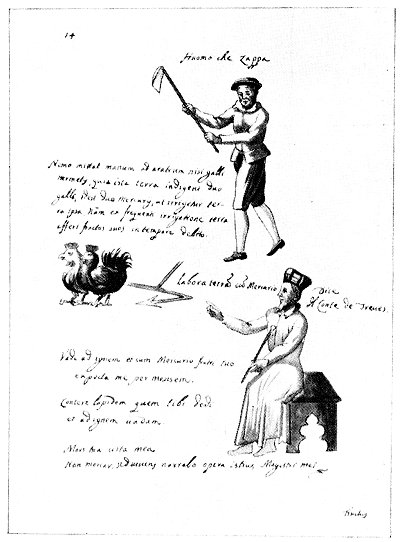 14
Huomo che Zappa
Nemo mittat manum ad aratrum nisi galli
mermets, quia ista terra indigene duo
galli, idest duo mercurij, ut irrigetur ter-
ra ipsa Nam ex frequenti irrigatione terra
affert fructus suos in tempore debito.
labora terra cũ Mercurio
Dice
Il Conte de Treues.
Vade ad ignem et cum Mercurio fratri tuo
expecta me per mensem.
Contere lapidem quem tibi dedi
et ad ignem vadam.
Mors tua vita mea
Non moriar, sed vivens narrabo opera istius Magistri mei